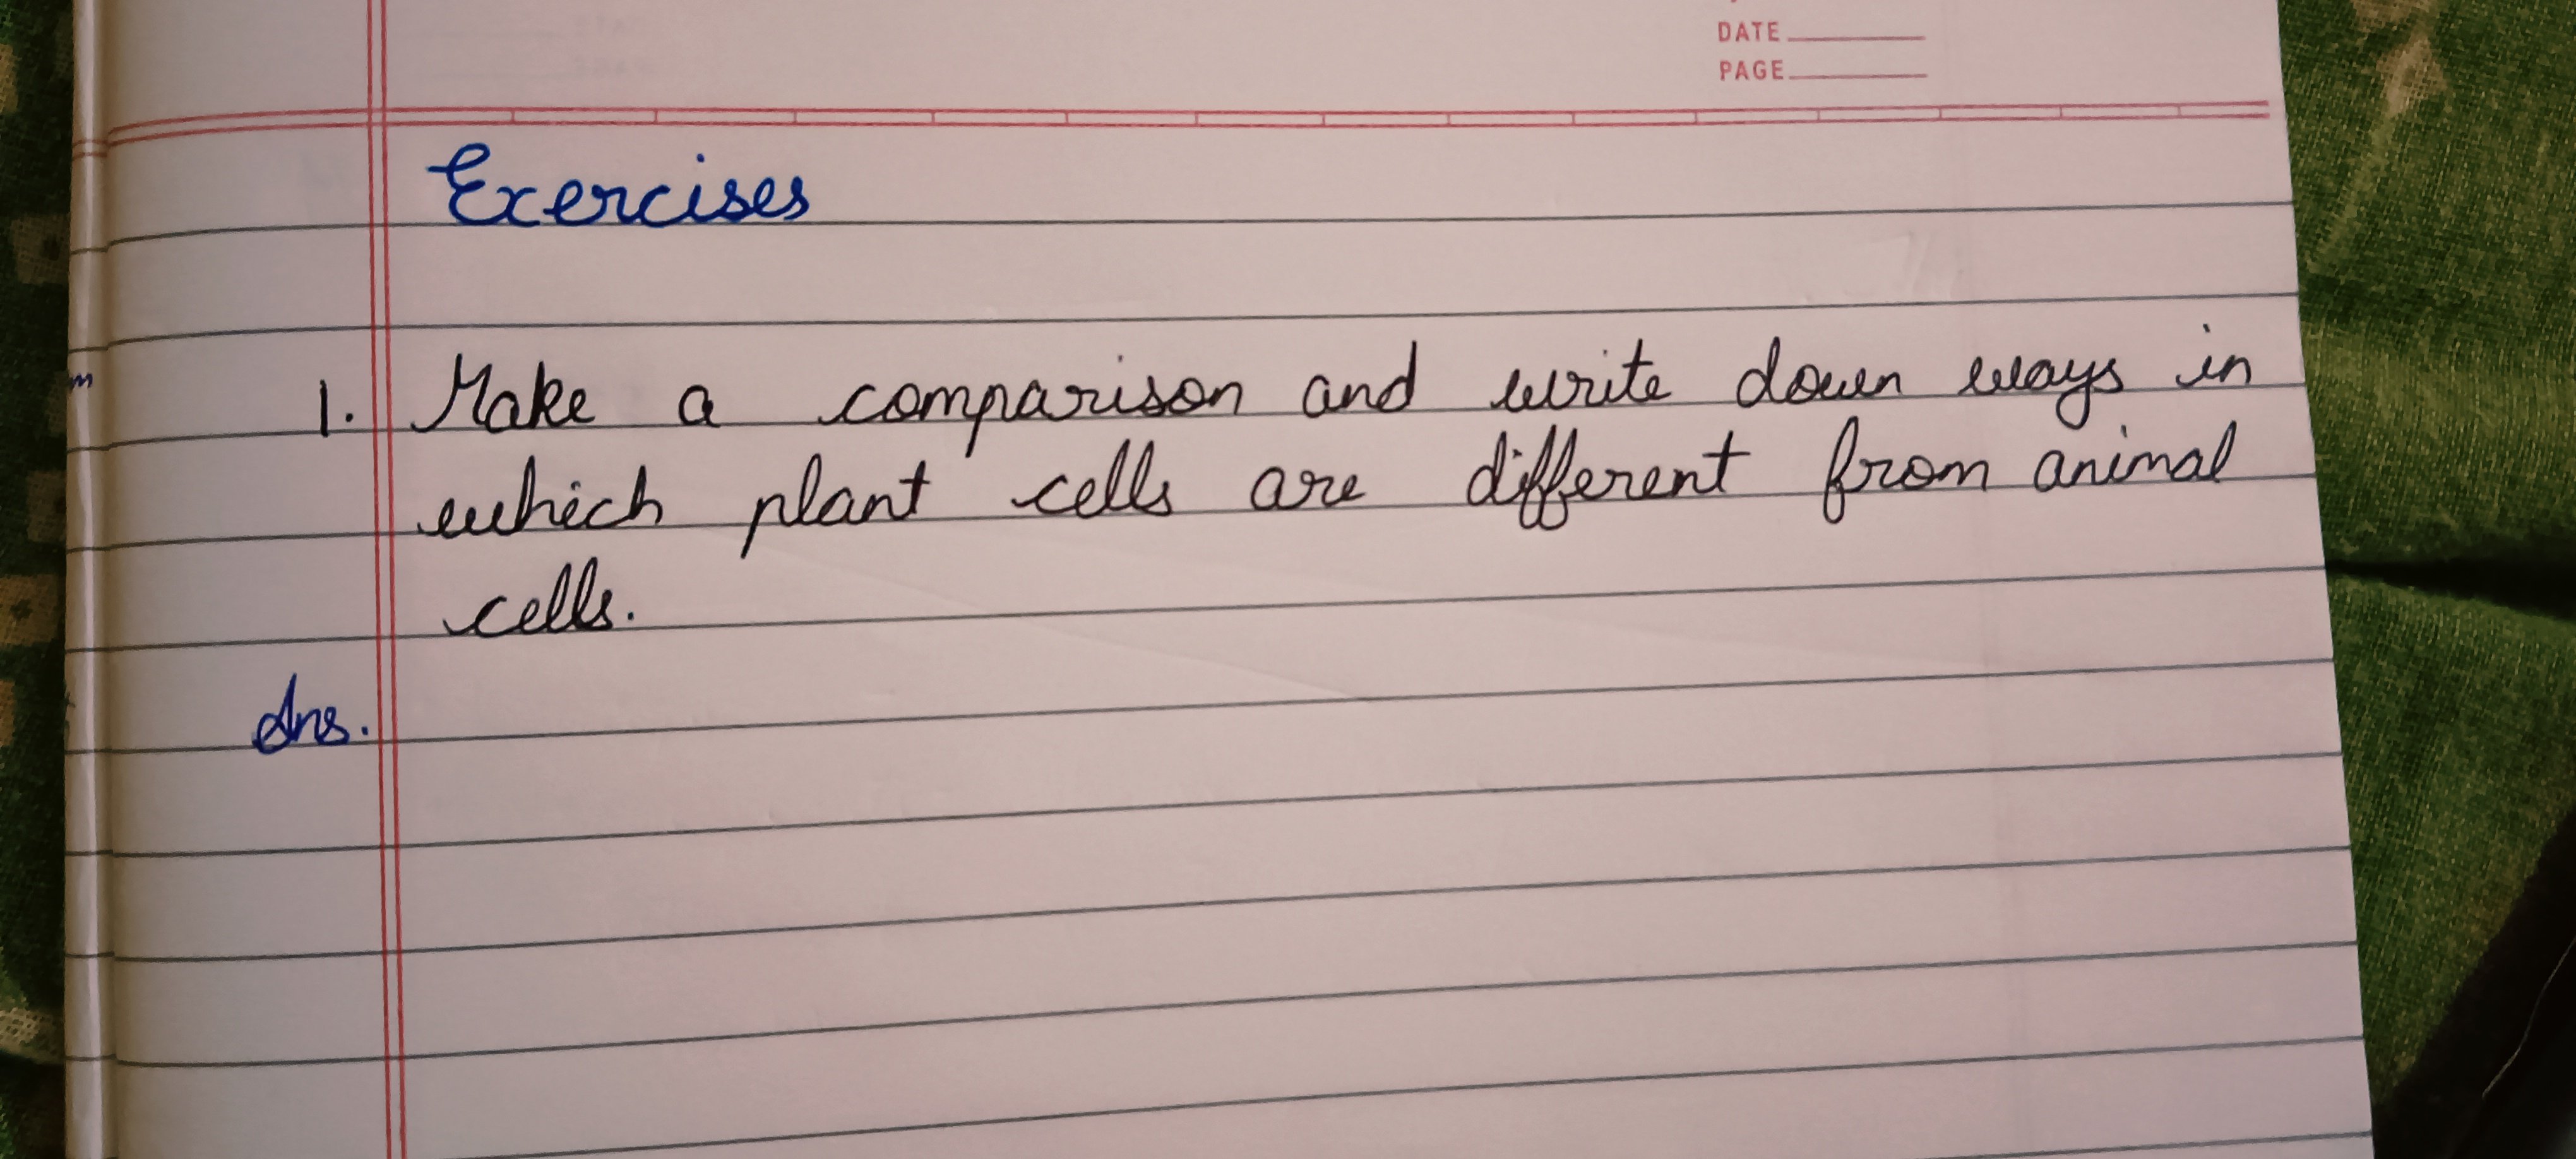 DATE
PAGE
Exercises
1. Make a comparison and write down ways in
which plant cells are different from animal
cells.
Ans.